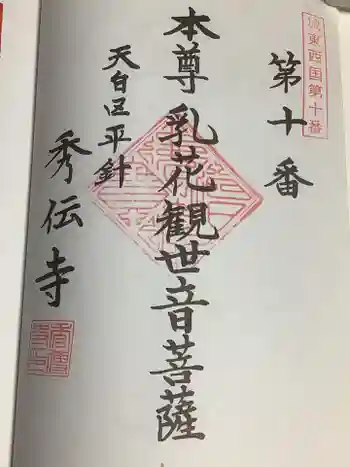 東西国第十番
第十番
本尊乳花観世音菩薩
天白区平針
秀伝寺